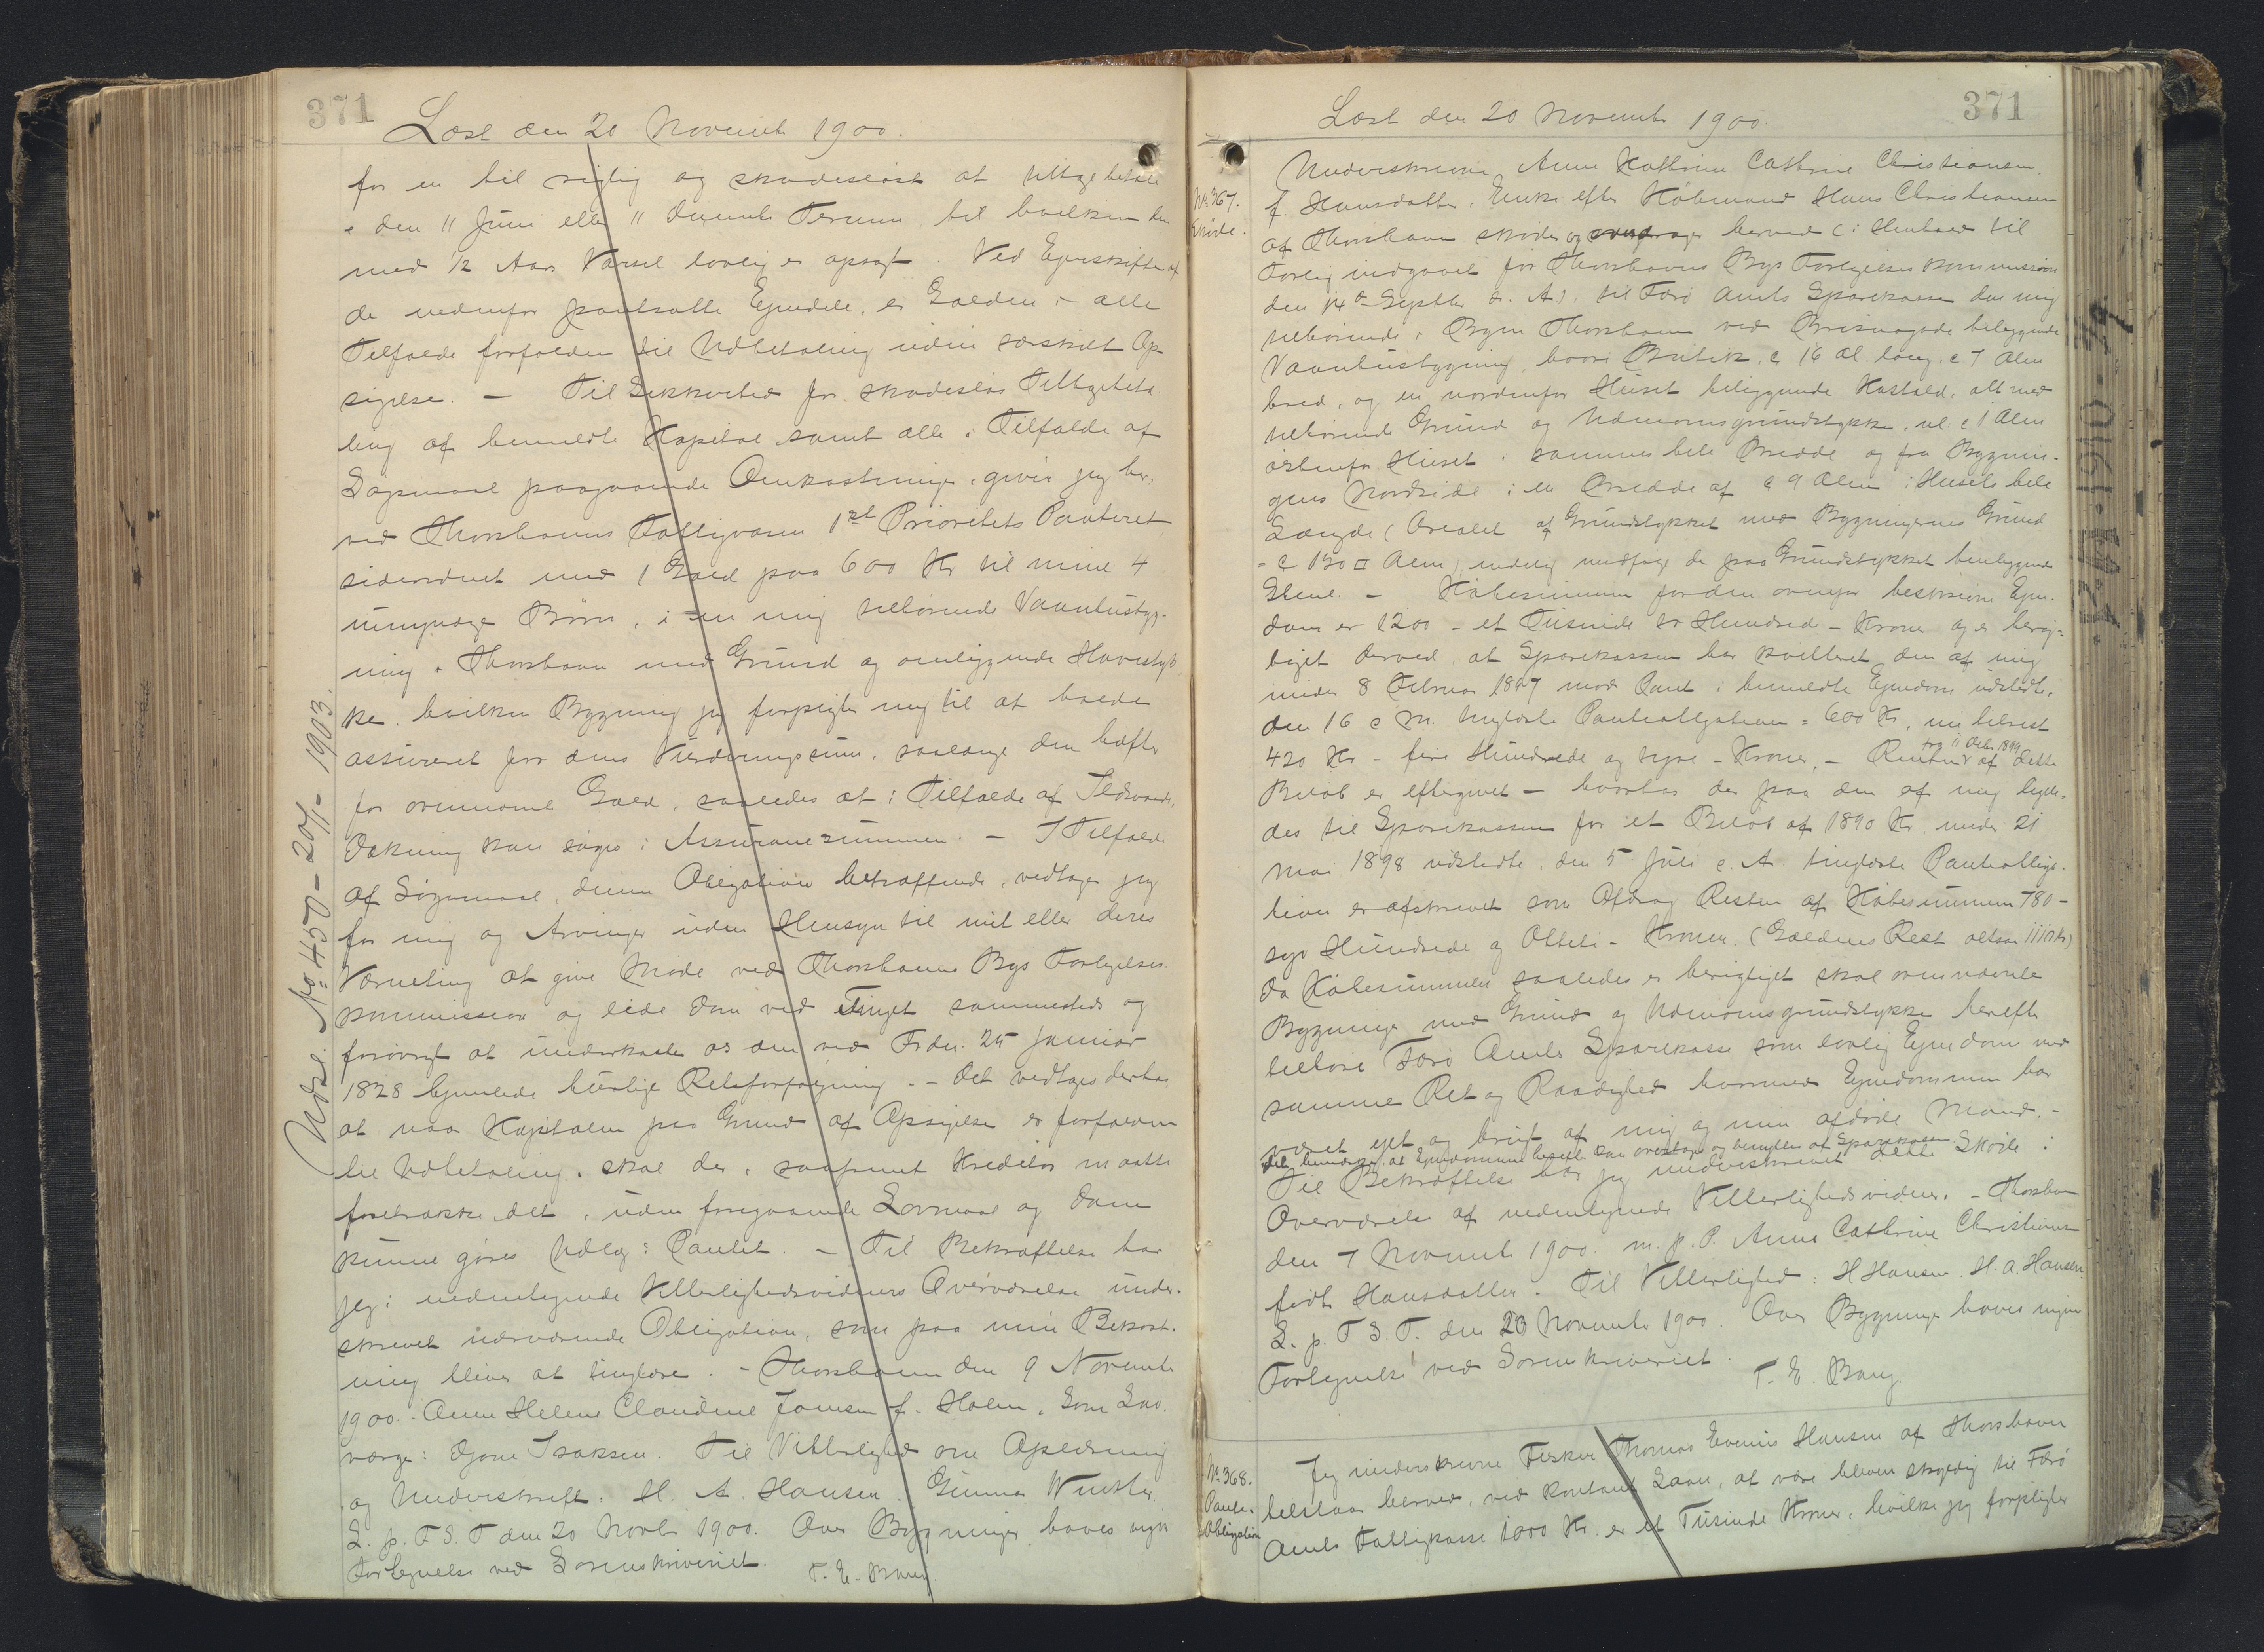 371
Læst den 20 Novembr 1900.
for en til rigtig og skadesløst at tilbagebetale
i den 11 Juni eller 11 Decembr Termin til hvilken den
med 1/2 Aars Varsel lovlig er opsagt. Ved Ejerskifte af
de nedenfor pantsatte Ejendele, er Gælden i alle
Tilfælde forfalden til Udbetaling uden særskilt Op-
sigelse. - Til Sikkerhed for skadesløs Tilbagebeta-
ling af bemeldte Kapital samt alle i Tilfælde af
Søgsmaal paagaaende Omkostninger, giver jeg her-
ved Thorshavns Fattigvæsen 1st Prioritets Panteret
sideordnet med 1 Gæld paa 600 Kr til mine 4
umyndige Børn, i en mig tilhørende Vaanhusbyg-
ning i Thorshavn med Grund og omliggende Havestyk-
ke, hvilken Bygning jeg forpligter mig til at holde
assureret for dens Vurderingssum, saalænge den hæfter
for ovennævnte Gæld, saaledes at i Tilfælde af Ildsvaade,
Dækning kan søges i Assurancesummen. - I Tilfælde
af Søgsmaal, denne Obligation betræffende, vedtager jeg
for mig og Arvinger uden Hensyn til mit eller deres
Værneting at give Møde ved Thorshavns Bys Forligelses-
kommission og lide Dom ved Tinget sammesteds og
forøvrigt at underkaste os den ved Frdn. 25 Januar
1828 hjemlede hurtige Retsforfølgning. - Det vedtages derhos
at naar Kapitalen paa Grund af Opsigelse er forfalden
til Udbetaling, skal der, saafremt Kreditor maatte
foretrække det, uden foregaaende Lovmaal og Dom
kunne gøres Udlæg i Pantet. - Til Bekræftelse har
jeg i nedentegnede Vitterlighedsvidners Overværelse under-
skrevet nærværende Obligation, som paa min Bekost-
ning bliver at tinglæse. - Thorshavn den 9 Novembr
1900. Anne Helene Claudine Joensen f. Holm. Som Lav-
værge: Djone Isaksen. Til Vitterlighed om Oplæsning
og Underskrift. H. A. Hansen. Gunnar Winther.
L. p. F S. T den 20 Novbr 1900. Over Bygninger haves ingen
Fortegnelse ved Sorenskriveriet. T. E. Bang.
Udsl. No 450 - 20/1 - 1903.
371
Læst den 20 Novembr 1900.
No 367.
Skøde.
Underskrevne Anne Kathrine Cathrine Christiansen
f. Hansdatter, Enke efter Købmand Hans Christiansen
af Thorshavn skøder og overdrager herved (i Henhold til
Forlig indgaaet for Thorshavns Bys Forligelseskommission
den 14de Septbr d. A). til Færø Amts Sparekasse den mig
tilhørende i Byen Thorshavn ved Bringsnagøde beliggende
Vaanhusbygning, hvori Butik, c 16 Al. lang, c 7 Alen
bred, og en nordenfor Huset beliggende Kostald, alt med
tilhørende Grund og Udenomsgrundstykke, nl. c 1 Alen
østenfor Huset i sammes hele Bredde og fra Bygnin-
gens Nordside i en Bredde af c 9 Alen i Husets hele
Længde (Arealet af Grundstykket med Bygningernes Grund
= c 130 □ Alen) endelig medfølge de paa Grundstykket henliggende
Stene. - Købesummen for den ovenfor beskrevne Ejen-
dom er 1200 - et Tusinde to Hundrede - Kroner og er berig-
tiget derved, at Sparekassen har kvitteret den af mig
under 8 Februar 1897 mod Pant i bemeldte Ejendom udstedte,
den 16 s M. tinglæste Panteobligation = 600 Kr, nu tilrest
420 Kr - fire Hundrede og tyve - Kroner, - Renten fra 11 Decbr 1899 af dette
Beløb er eftergivet - hvorhos der paa den af mig ligele-
des til Sparekassen for et Beløb af 1890 Kr under 21
Mai 1898 udstedte, den 5 Juli s. A. tinglæste Panteobliga-
tion er afskrevet som Afdrag Resten af Købesummen 780 -
syv Hundrede og Otteti - Kroner. (Gældens Rest altsaa 1110 Kr)
Da Købesummen saaledes er berigtiget skal ovennævnte
Bygninger med Grund og Udenomsgrundstykke herefter
tilhøre Færø Amts Sparekasse som lovlig Ejendom med
samme Ret og Raadighed hvormed Ejendommen har
været ejet og brugt af mig og min afdøde Mand. -
Det bemærkes at Ejendommen herefter kan overtages og benyttes af Sparekassen
Til Bekræftelse har jeg underskrevet dette Skøde i
Overværelse af nedentegnede Vitterlighedsvidner. - Thorshavn
den 7 Novembr 1900. m. p. P. Anne Cathrine Christiansen
født Hansdatter. Til Vitterlighed: H Hansen. H. A. Hansen.
L. p. F S. T. den 20 Novembr 1900. Over Bygninger haves ingen
Fortegnelse ved Sorenskriveriet.
T. E. Bang
No 368.
Pante-
obligation
Jeg underskrevne Fisker Thomas Evenius Hansen af Thorshavn
tilstaar herved, ved kontant Laan, at være bleven skyldig til Færø
Amts Fattigkasse 1000 Kr. er et Tusinde Kroner, hvilke jeg forpligter